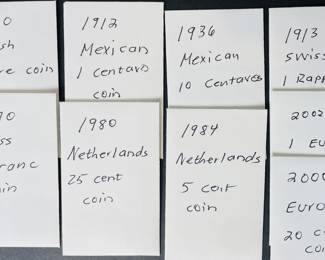 1912
Mexican
1 Centavo
coin
1936
Mexican
10 Centavos
1913
Swiss
1 Rapp
1980
Netherlands
25 cent
coin
1984
Netherlands
5 cent
coin
2002
1 Eu
200
Euro
20 c
co